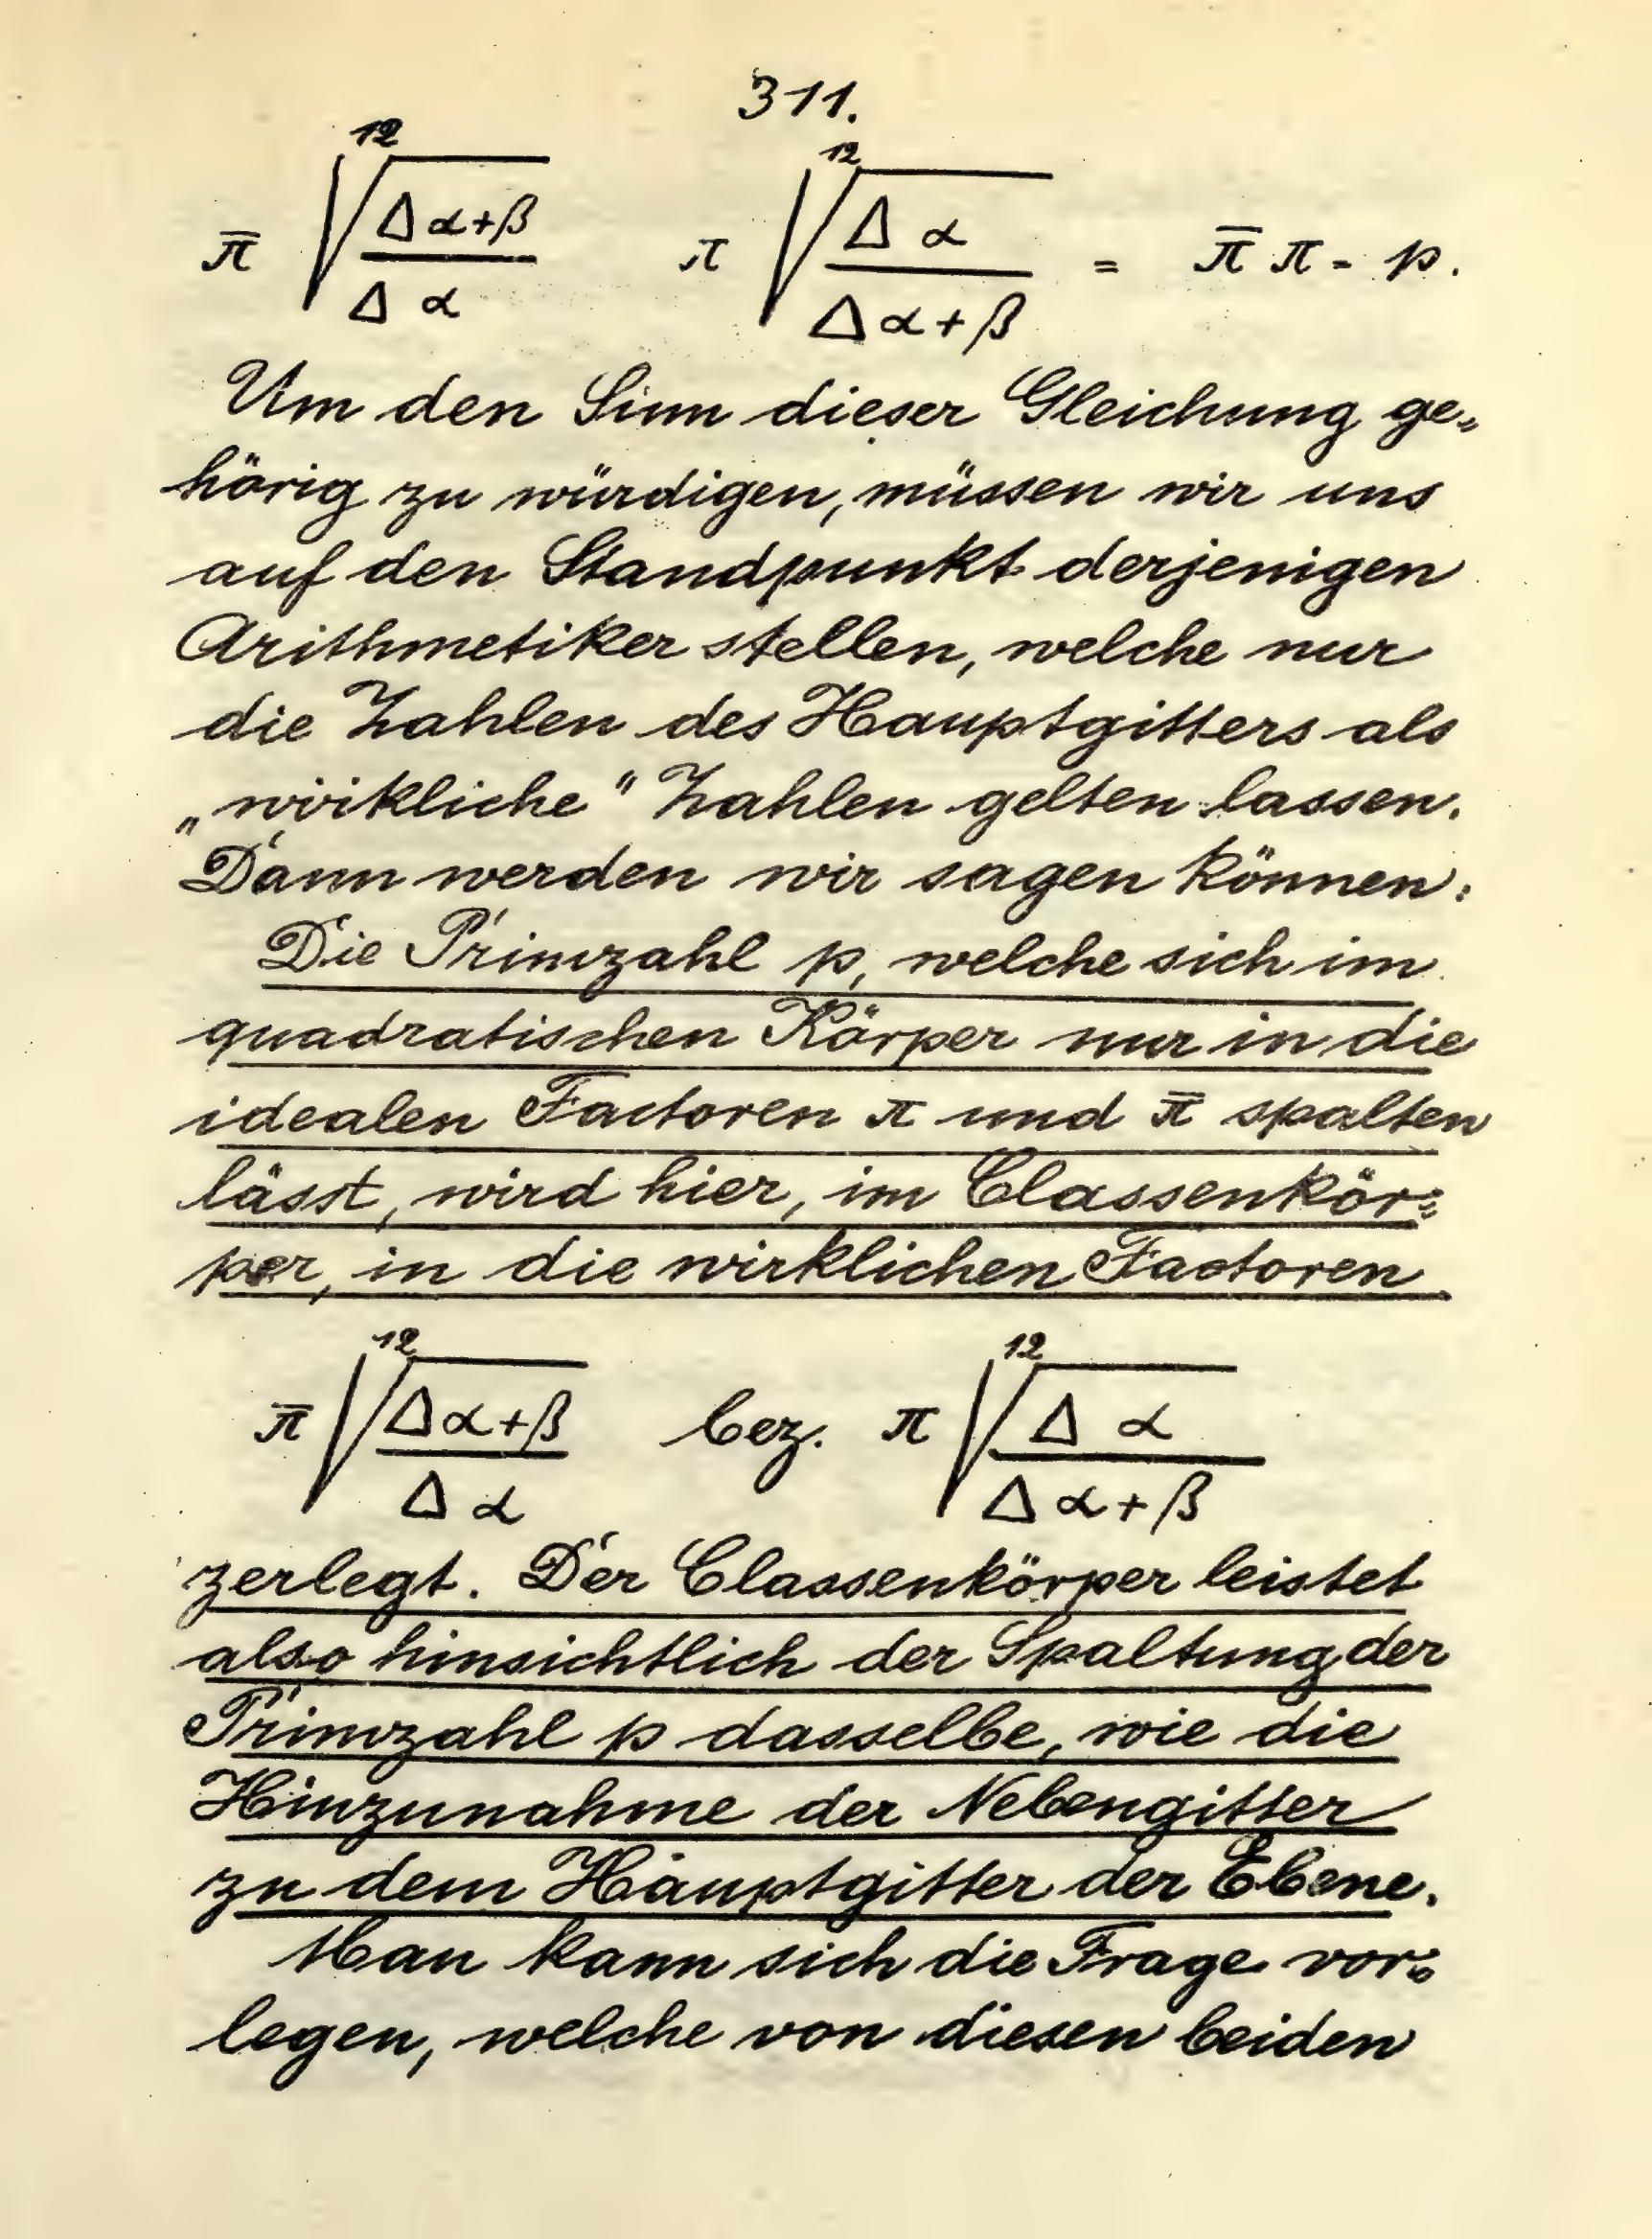 311.
$\bar{\pi} \sqrt[12]{\frac{\Delta_{\alpha+\beta}}{\Delta_\alpha}} \quad \pi \sqrt[12]{\frac{\Delta_\alpha}{\Delta_{\alpha+\beta}}} = \bar{\pi} \pi = p.$
Um den Sinn dieser Gleichung ge-
hörig zu würdigen, müssen wir uns
auf den Standpunkt derjenigen
Arithmetiker stellen, welche nur
die Zahlen des Hauptgitters als
„wirkliche" Zahlen gelten lassen.
Dann werden wir sagen können:
Die Primzahl p, welche sich im
quadratischen Körper nur in die
idealen Factoren π und π̄ spalten
lässt, wird hier, im Classenkör-
per, in die wirklichen Factoren
$\bar{\pi} \sqrt[12]{\frac{\Delta_{\alpha+\beta}}{\Delta_\alpha}}$ bez. $\pi \sqrt[12]{\frac{\Delta_\alpha}{\Delta_{\alpha+\beta}}}$
zerlegt. Der Classenkörper leistet
also hinsichtlich der Spaltung der
Primzahl p dasselbe, wie die
Hinzunahme der Nebengitter
zu dem Hauptgitter der Ebene.
Man kann sich die Frage vor-
legen, welche von diesen beiden